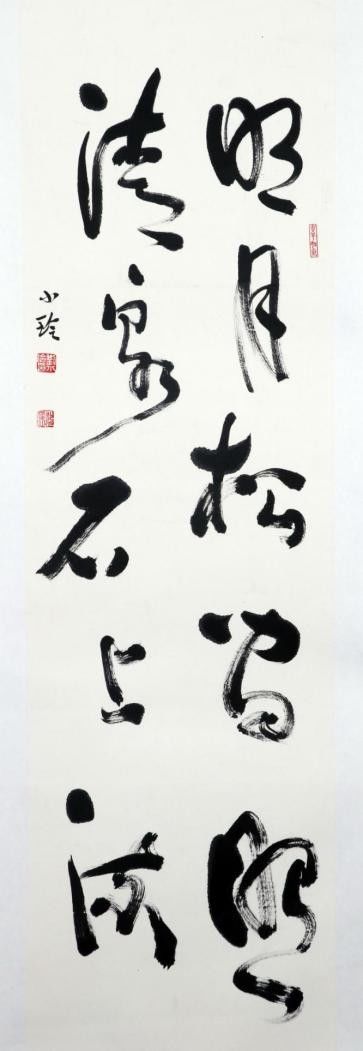 明月松間照
清泉石上流
小玲